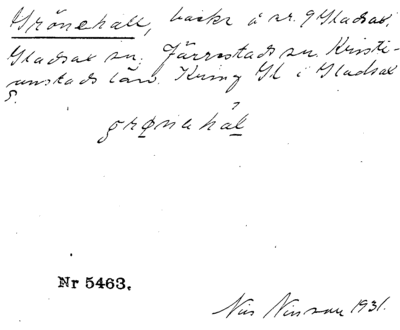 Grönehall, backe å nr. 9 Gladsax,
Gladsax sn. Järrestads hd. Kristi-
anstads län. Kring Gl i Gladsax
S.
grønahál
Nr 5463.
Nils Nilsson 1931.